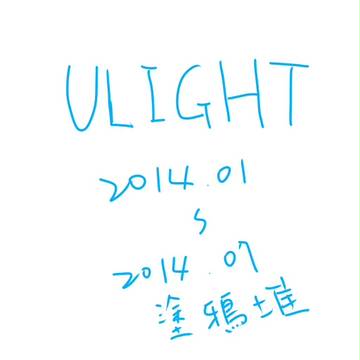 ULIGHT
2014.01
~
2014.07
塗鴉堆